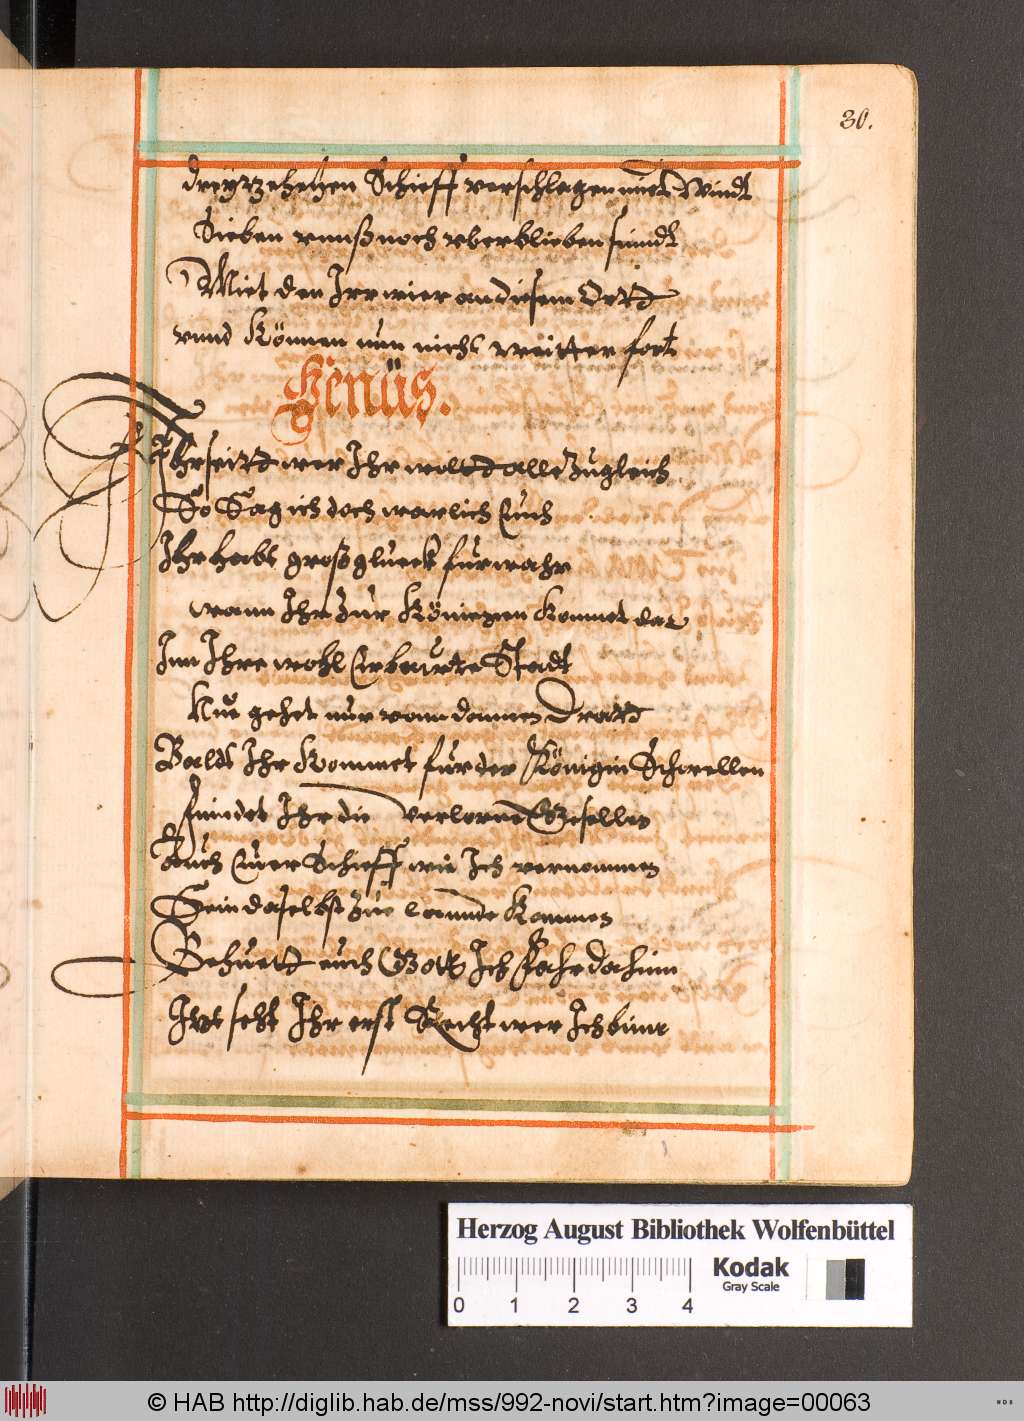 30.
dreyzehen Schieff verschlagen mitt Windt
Sieben vnnß noch vberblieben sindt
Mit den Irr wier an diesem Ortt
vnnd Können nun nicht weitter fort
Venus.
Ihr seitt wer Ihr woltt alle Zugleich
So Sag ich doch warlich Euch
Ihr habt groß glueck furwahr
wann Ihr Zur Königen Kommet dar
Inn Ihre wohl Erbautte Stadt
Nue gehet nur vonn dannen Dratt
Baldt Ihr Kommet fur der Königin Schwellen
findet Ihr die verlorne Gesellen
Auch Euer Schieff wie Ich vernommen
Sein daselbst Zue lannde Kommen
Behuett euch Gott Ich Fahr dahinn
Itzt seht Ihr erst Recht wer Ich binn
Herzog August Bibliothek Wolfenbüttel
Kodak
Gray Scale
0 1 2 3 4
© HAB http://diglib.hab.de/mss/992-novi/start.htm?image=00063